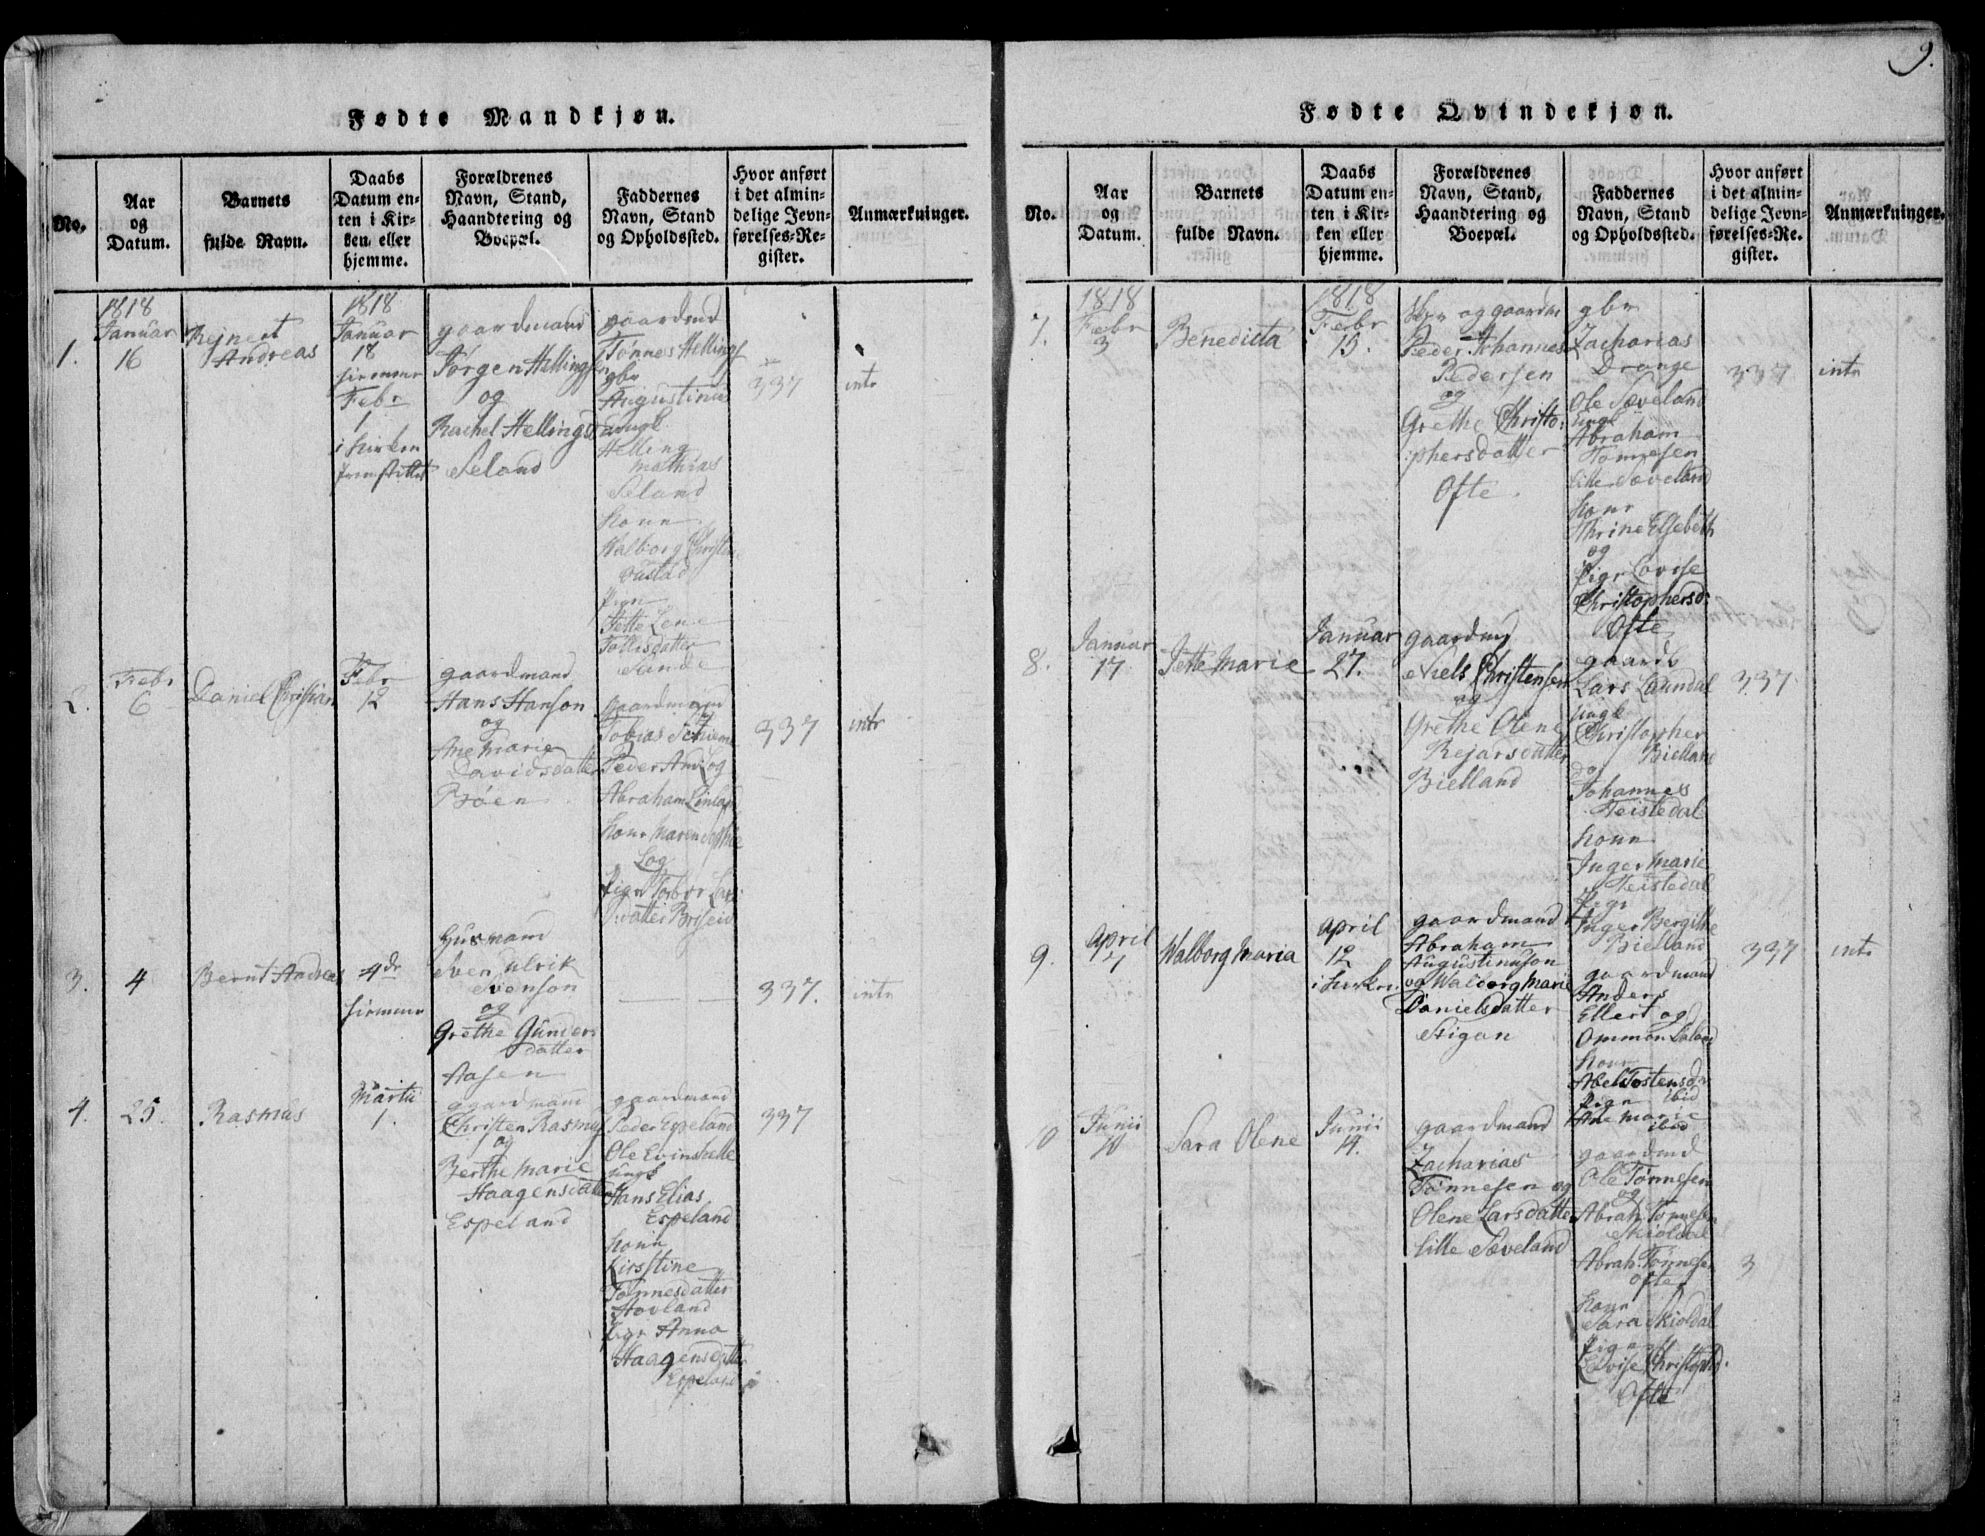 9.
Fødte Mandkjøn.
No.
Aar
og
Datum.
Barnets
fulde Navn.
Daabs
Datum en-
ten i Kir-
ken eller
hjemme.
Forældrenes
Navn, Stand,
Haandtering og
Boepæl.
Faddernes
Navn, Stand
og Opholdssted.
Hvor anført
i det almin-
delige Jevn-
førelses-Re-
gister.
Anmærkninger.
1.
1818
Januar
16
Rejnert
Andreas
1818
Januar
18
hiemme
Febr
1
i kirken
fremstillet
gaardmand
Jørgen Hellings
og
Rachel Hellings
Seland
gaardmd
Tønnes Hellings
gbr
Augustinus
Helling
Mathias
Seland
kone
Walborg Christen
pige
Jette Lene
Tollisdatter
Sande
337
intr
2.
Febr
6
Daniel Christian
Febr
12
gaardmand
Hans Hanson
og
Ane Marie
Davidsdatter
Bøen
gaardmænd
Tobias
Peder And Log
Abraham
kone Maren Sophie
Log
pige Torbor Lars
datter Briseid
337
intr
3.
4
Bernt Andreas
4de
hiemme
Husmand
Sven Ulrik
Svenson
og
Grethe Gunders
datter
Aasen
337.
intr
4.
25.
Rasmus
Martii
1.
gaardmand
Christen Rasmus
og
Berthe Marie
Haagensdatter
Espeland
gaardmand
Peder Espeland
Ole Evinstelle
ungk
Hans Elias
Espeland
kone
Kirsstine
Tønnesdatter
Hovland
pige Anna
Haagensdatter
Espeland
337
Fødte Qvindekjøn.
No.
Aar
og
Datum.
Barnets
fulde Navn.
Daabs
Datum en-
ten i Kir-
ken eller
hjemme.
Forældrenes
Navn, Stand,
Haandtering og
Boepæl.
Faddernes
Navn, Stand
og Opholdssted.
Hvor anført
i det almin-
delige Jevn-
førelses-Re-
gister.
Anmærkninger.
7.
1818
Febr
3
Benedicta
1818
Febr
15.
og gaardm
Peder Johannes
Pedersen
og
Grethe Christo-
phersdatter
Ofte
gbr
Zacharias
Drange
Ole Sæveland
ungk
Abraham
Tønnesen
lille Sæveland
kone
Thrine Elsebeth
og
pige Lovise
Christophersd.
Ofte
337
intr
8.
Januar
17
Jette Marie
Januar
27.
gaardmd
Niels Christensen
og
Grethe Olene
Rejarsdatter
Bielland
gaardb
Lars Laundal
ungk
Christopher
Bielland
og
Johannes
Teistedal
kone
Inger Marie
Teistedal
pige
Inger Bergithe
Bielland
337
9.
April
7
Walborg Maria
April
12
i kirken
gaardmand
Abraham
Augustinuson
og Walborg Marie
Danielsdatter
Stigan
gaardmand
Anders
Ellert og
Ommon
kone
Abel Tostensd
pige ibid
Ane Marie
ibid
337
intr
10
Junii
10
Sara Olene
Junii
14.
gaardmand
Zacharias
Tønnesen og
Olene Larsdatter
lille Sæveland
gaardmd
Ole Tønnesen
og
Abrah. Tønnesen
Skioldal
Abrah. Tønnesen
Ofte
kone
Sara Skioldal
pige
Lovise Christophd.
Ofte
3